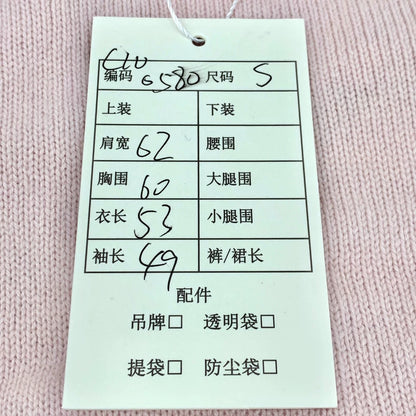 CLU
编码 6580 尺码 S
上装 下装
肩宽 62 腰围
胸围 60 大腿围
衣长 53 小腿围
袖长 49 裤/裙长
配件
吊牌□ 透明袋□
提袋□ 防尘袋□